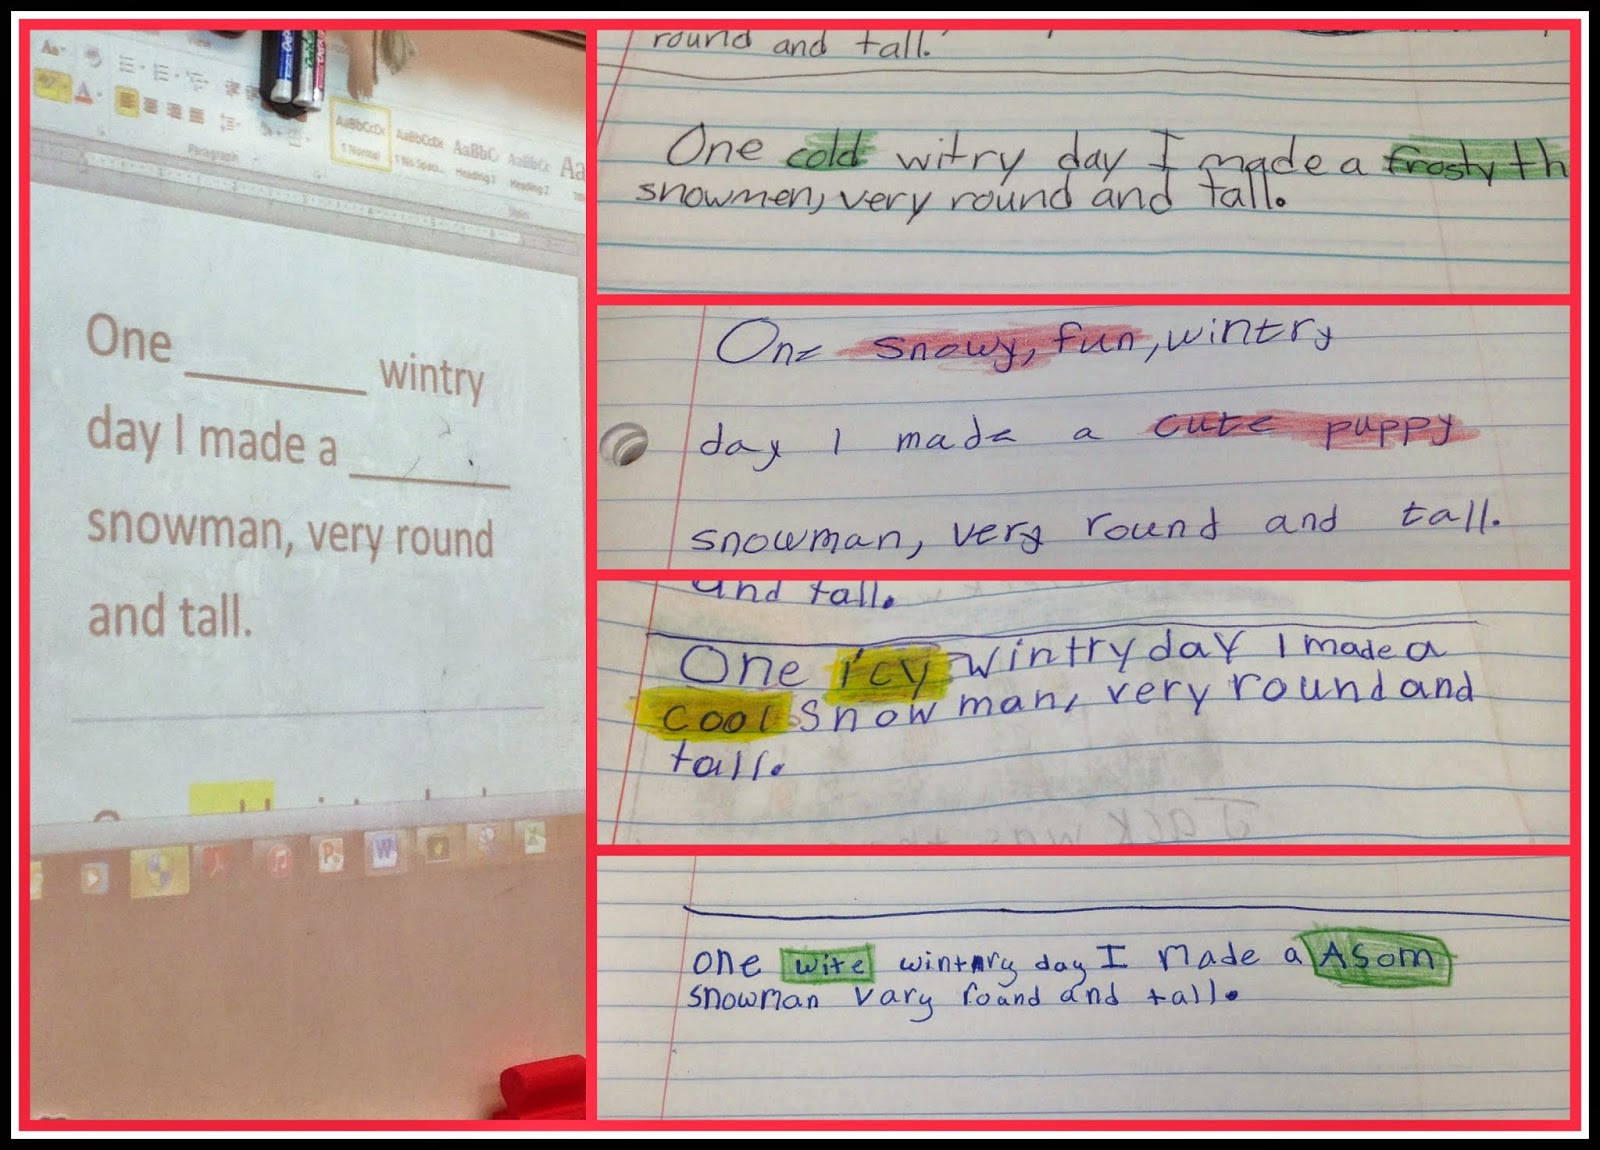 AaBbCcDc
AaBbCcDc
AaBbC
AaBbCc
Aa
¶ Normal
¶ No Spac...
Heading 1
Heading 2
Paragraph
Styles
One ________ wintry
day I made a ________
snowman, very round
and tall.
round and tall.
One cold witry day I made a frosty th
snowmen, very round and tall.
One snowy, fun, wintry
day I made a cute puppy
snowman, very round and tall.
and tall.
One icy wintry day I made a
cool snow man, very round and
tall.
Jack was
one wite wintnry day I made a Asom
snowman vary round and tall.